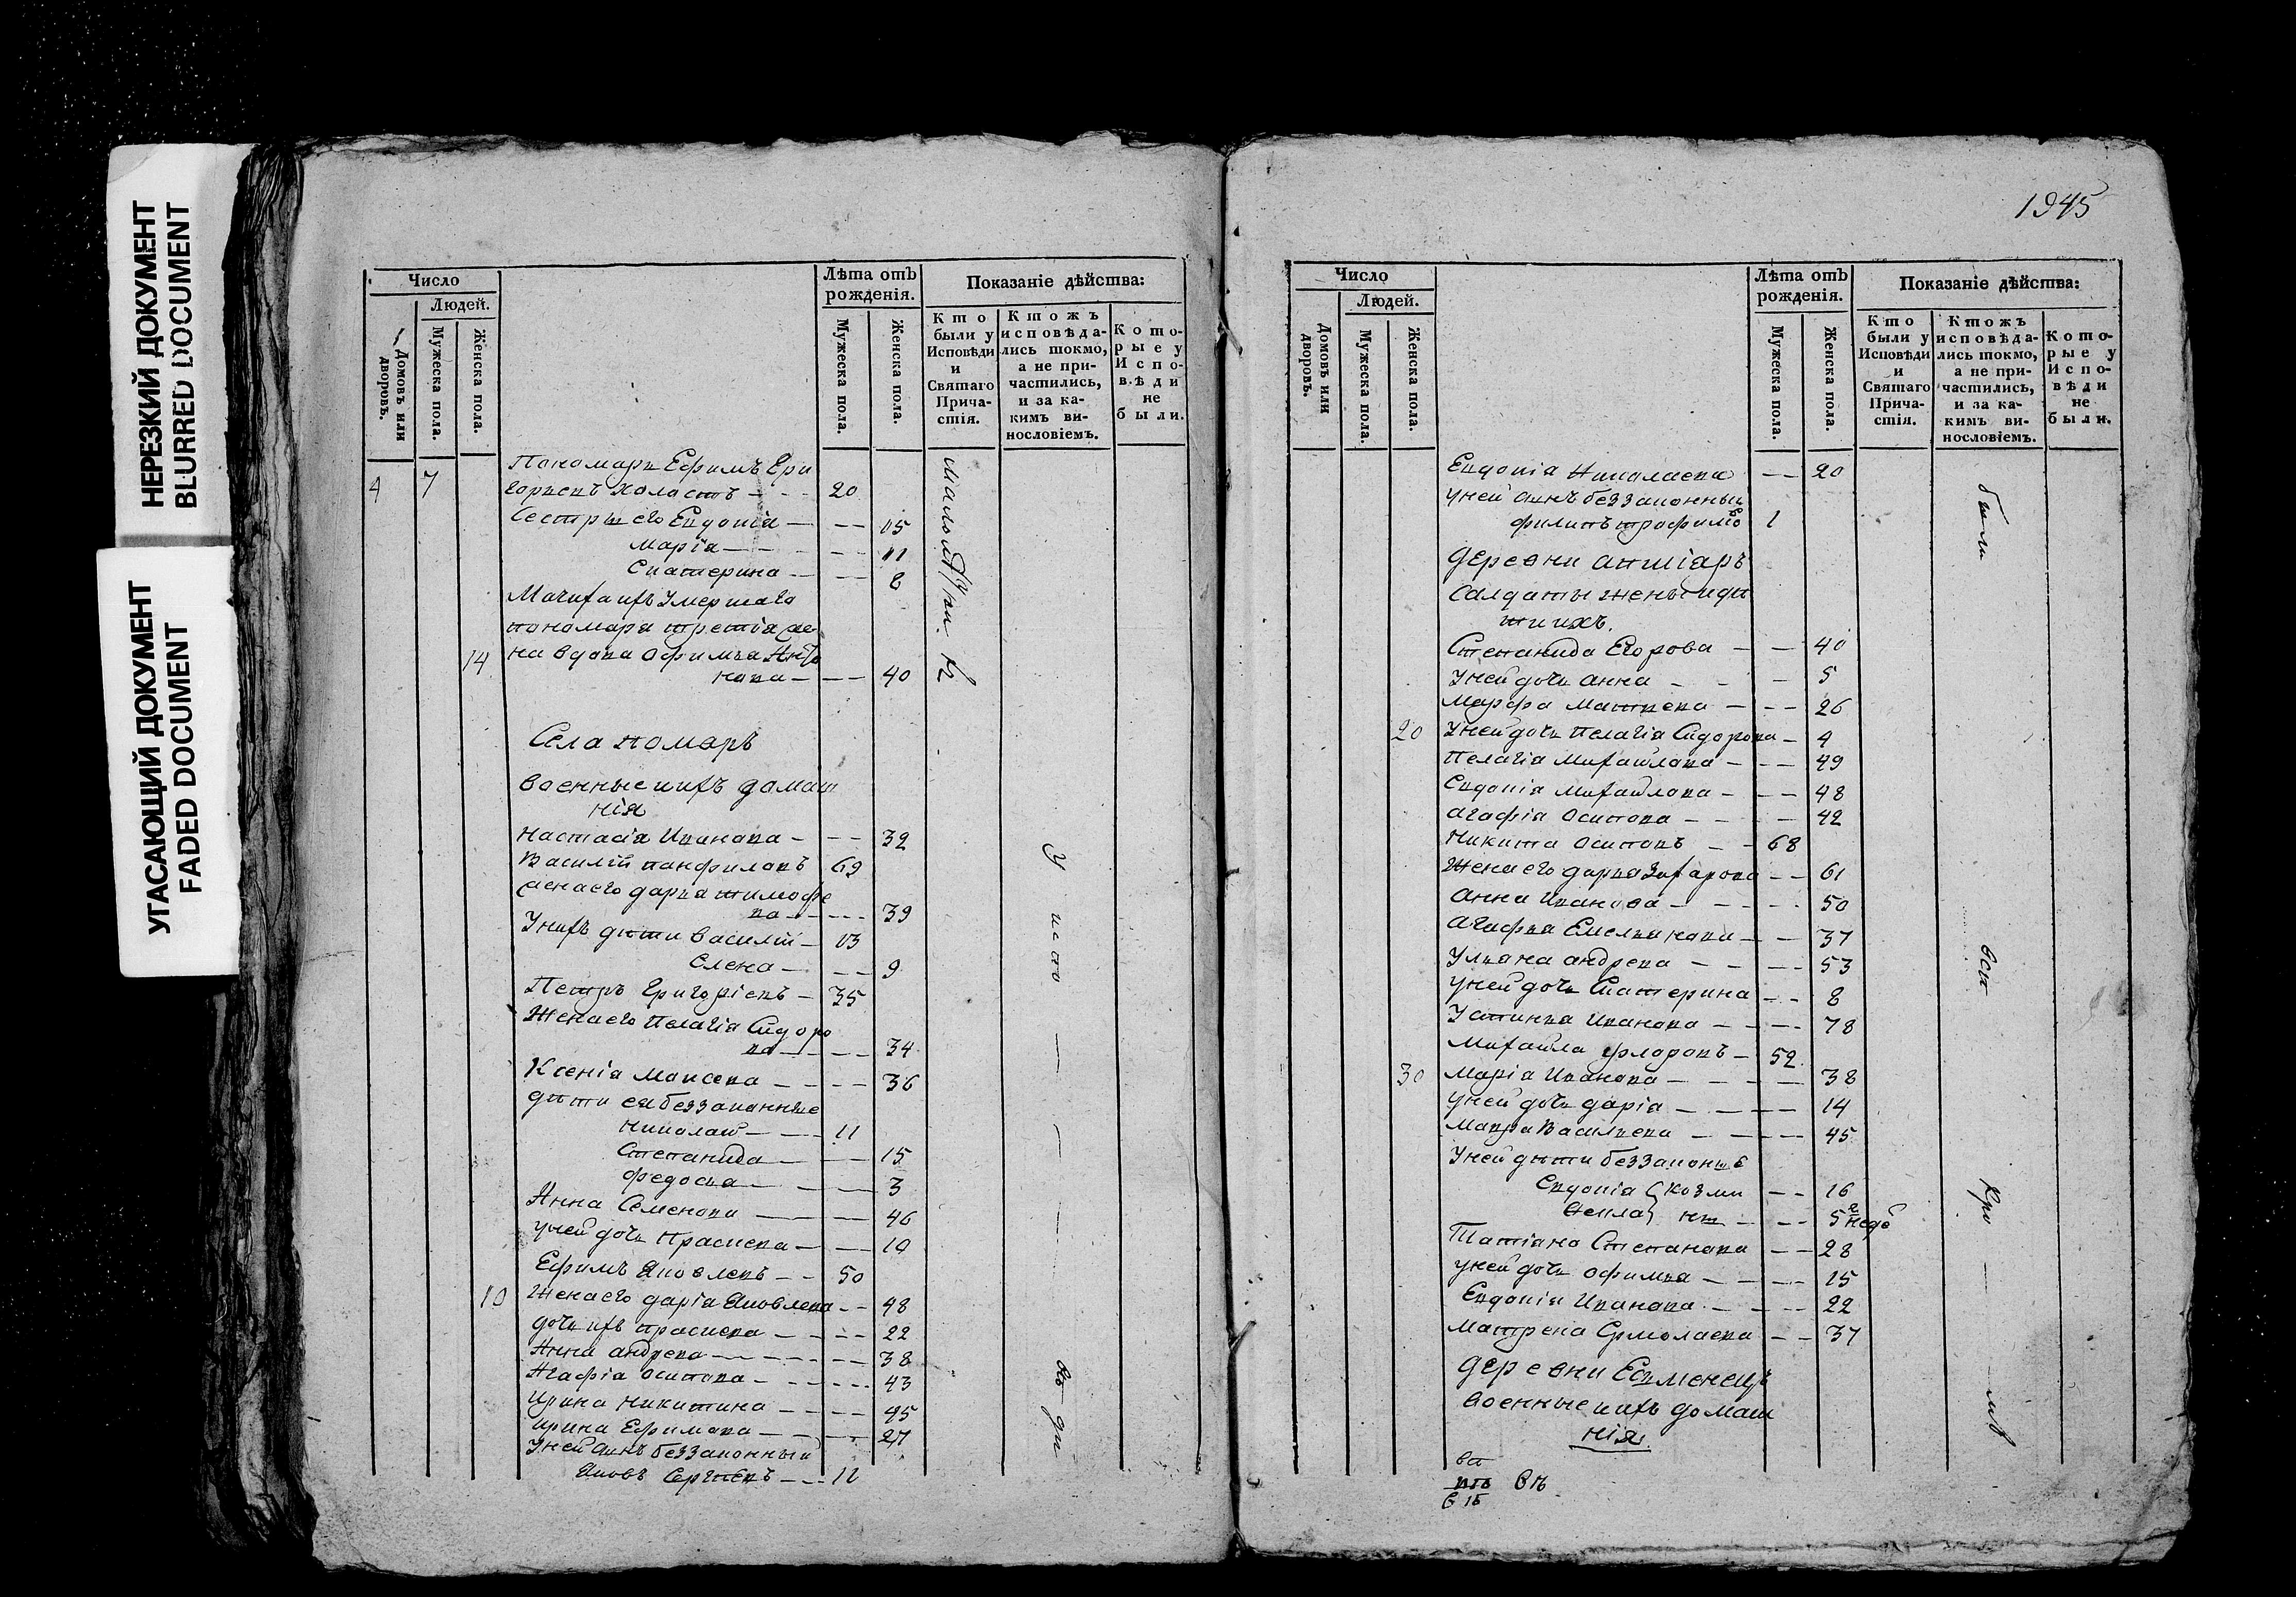 НЕРЕЗКИЙ ДОКУМЕНТ
BLURRED DOCUMENT
УГАСАЮЩИЙ ДОКУМЕНТ
FADED DOCUMENT
Число
Людей.
Домовъ или дворовъ.
Мужеска пола.
Женска пола.
Лѣта отъ рожденія.
Мужеска пола.
Женска пола.
Показаніе дѣйства:
Кто были у Исповѣди и Святаго Причастія.
Ктожъ исповѣдались токмо, а не причастились, и за какимъ винословіемъ.
Которые у Исповѣди не были.
Пономарь Ефимъ Гри
4 7 горьевъ холостъ 20
Сестры его Евдокія 15
Марія 11
Екатерина 8
Мачиха ихъ умершаго
пономаря третія же
14 на вдова Офимья
нова 40
Села
военные и ихъ домаш
нія
Настасія Иванова 32
Василій Панфиловъ 69
жена его Дарья Тимофе
ва 39
У нихъ дѣти Василій 13
Елена 9
Петръ Григоріевъ 35
Жена его Пелагія Сидоро
ва 34
Ксенія 36
дѣти ея беззаконные
Николай 11
Степанида 15
Федосья 3
Анна Семенова 46
у ней дочь Прасковья 10
Ефимъ Яковлевъ 50
10 Жена его Дарія Яковлева 48
дочь ихъ Прасковья 22
Анна Андрева 38
Агафія Осипова 43
Ирина Никитина 45
Ирина Ефимова 27
У ней сынъ беззаконный
Яковъ Сергѣевъ 11
1945
Число
Людей.
Домовъ или дворовъ.
Мужеска пола.
Женска пола.
Лѣта отъ рожденія.
Мужеска пола.
Женска пола.
Показаніе дѣйства:
Кто были у Исповѣди и Святаго Причастія.
Ктожъ исповѣдались токмо, а не причастились, и за какимъ винословіемъ.
Которые у Исповѣди не были.
Евдокія Николаева 20
у ней сынъ беззаконный
Филипъ Трофимовъ 1
деревни
Салдаты жены и дѣ
ти ихъ.
Степанида Егорова 40
У ней дочь Анна 5
Марфа Матвева 26
20 У ней дочь Пелагія Сидорова 4
Пелагія Михайлова 49
Евдокія Михайлова 48
Агафія Осипова 42
Никита Осиповъ 68
Жена его Дарья Захарова 61
Анна Иванова 50
Агафья Емельянова 37
Ульяна Андрева 53
у ней дочь Екатерина 8
Устинья Иванова 78
Михайла Флоровъ 52
30 Марія Иванова 38
у ней дочь Дарія 14
Васильева 45
У ней дѣти беззаконные
Евдокія Козми 16
Фекла 5 недѣ
Татіана Степанова 28
у ней дочь Офимья 15
Евдокія Иванова 22
Матрена Ермолаева 37
деревни
военные и ихъ домаш
нія